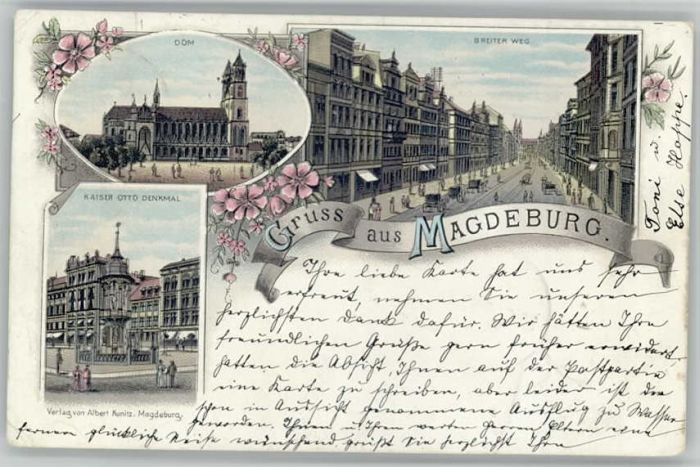 DOM
BREITER WEG.
KAISER OTTO DENKMAL
Gruss aus MAGDEBURG.
Ihre liebe Karte hat uns sehr
erfreut, nehmen Sie unseren
herzlichsten Dank dafür. Wir hätten Ihre
freundlichen Grüße gern früher erwidert
hatten die Absicht, Ihnen auf der
eine Karte zu schreiben, aber leider ist der
schon in Aussicht genommene Ausflug zu Wasser
geworden. Ihnen u. Ihren werten Eltern eine
fernere glückliche Reise wünschend grüßt Sie herzlichst Ihre
Toni u.
Else Hoppe
Verlag von Albert Kunitz, Magdeburg.